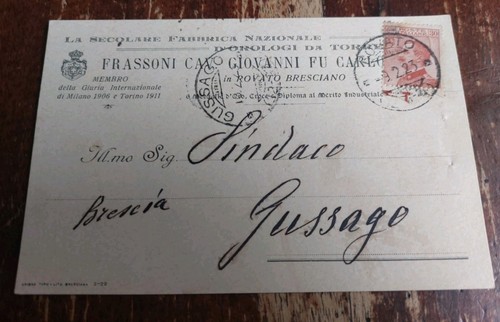 La Secolare Fabbrica Nazionale
d'Orologi da Torre
Frassoni Cav. Giovanni fu Carlo
MEMBRO
della Giuria Internazionale
di Milano 1906 e Torino 1911
in ROVATO BRESCIANO
d'Oro, Croce e Diploma al Merito Industriale
GUSSAGO
2.23
Ill.mo Sig. Sindaco
Brescia Gussago